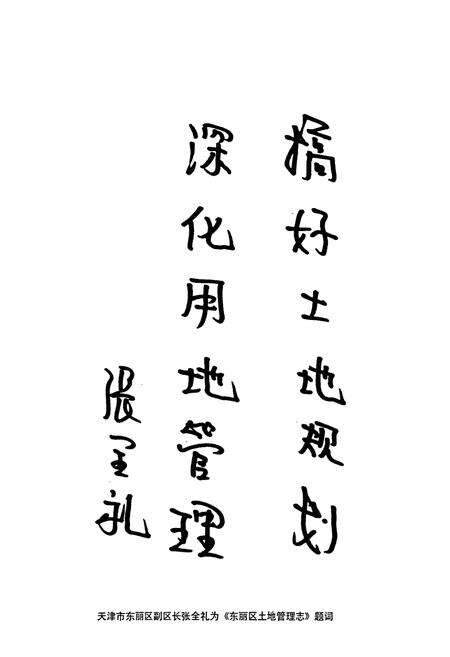 搞好土地规划
深化用地管理
张全礼
天津市东丽区副区长张全礼为《东丽区土地管理志》题词